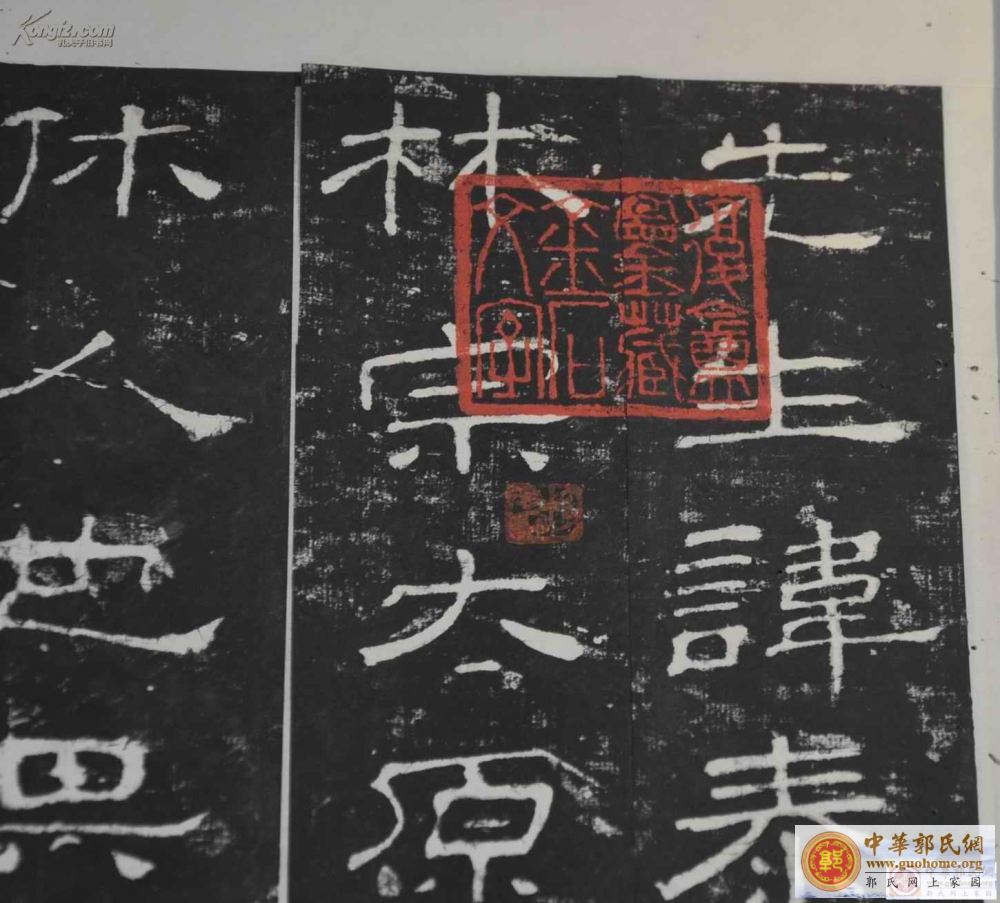 Kongfz.com
孔夫子旧书网
先生諱泰
林宗太原
休人也其
藏
金石
文字
中華郭氏網
www.guohome.org
郭氏网上家园
郭